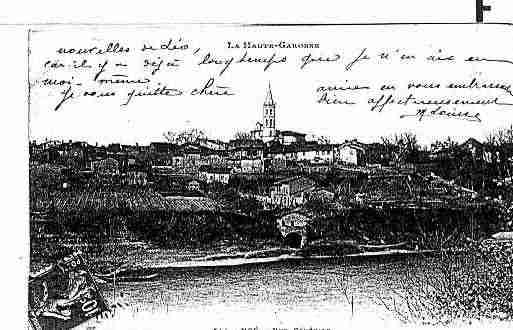 LA HAUTE-GARONNE
nouvelles de Léo,
car il y a déjà longtemps que je n'ai eu
moi-même.
Je vous quitte chère
amies en vous embrassant
bien affectueusement
M Louise
NOÉ — VUE GÉNÉRALE